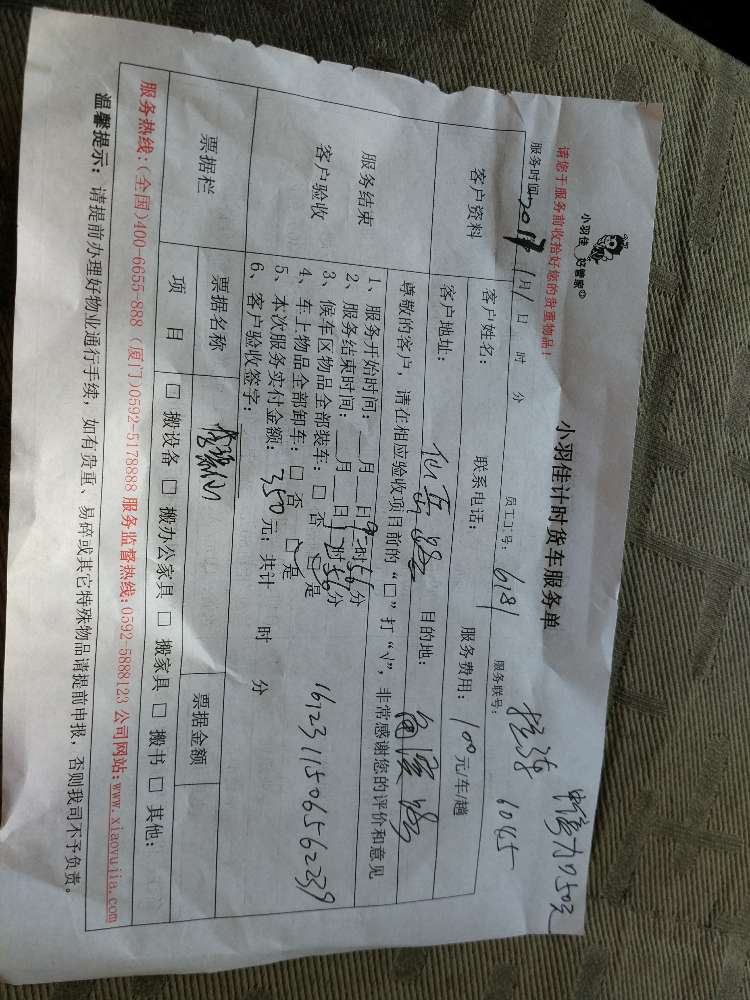 小羽佳 好管家
小羽佳计时货车服务单
请您于服务前收拾好您的贵重物品!
服务时间: 2017 1月1日 时 分 员工工号: 6181 服务联号: 6045
750元
客户资料 客户姓名: 联系电话: 服务费用: 100元/车/趟
客户地址: 仙岳路 目的地:
尊敬的客户，请在相应验收项目前的“□”打“√”，非常感谢您的评价和意见
服务结束
客户验收
1、服务开始时间: __月__日9时56分
2、服务结束时间: __月__日
3、候车区物品全部装车: □ 否 □ 是
4、车上物品全部卸车: □ 否 □ 是
5、本次服务实付金额: 350元; 共计 时 分
6、客户验收签字:
1612311506562239
票据栏 票据名称 票据金额
项 目 □ 搬设备 □ 搬办公家具 □ 搬家具 □ 搬书 □ 其他:
服务热线:(全国)400-6655-888 (厦门)0592-5178888 服务监督热线:0592-5888123 公司网站:www.xiaoyujia.com
温馨提示: 请提前办理好物业通行手续, 如有贵重、易碎或其它特殊物品请提前申报, 否则我司不予负责。